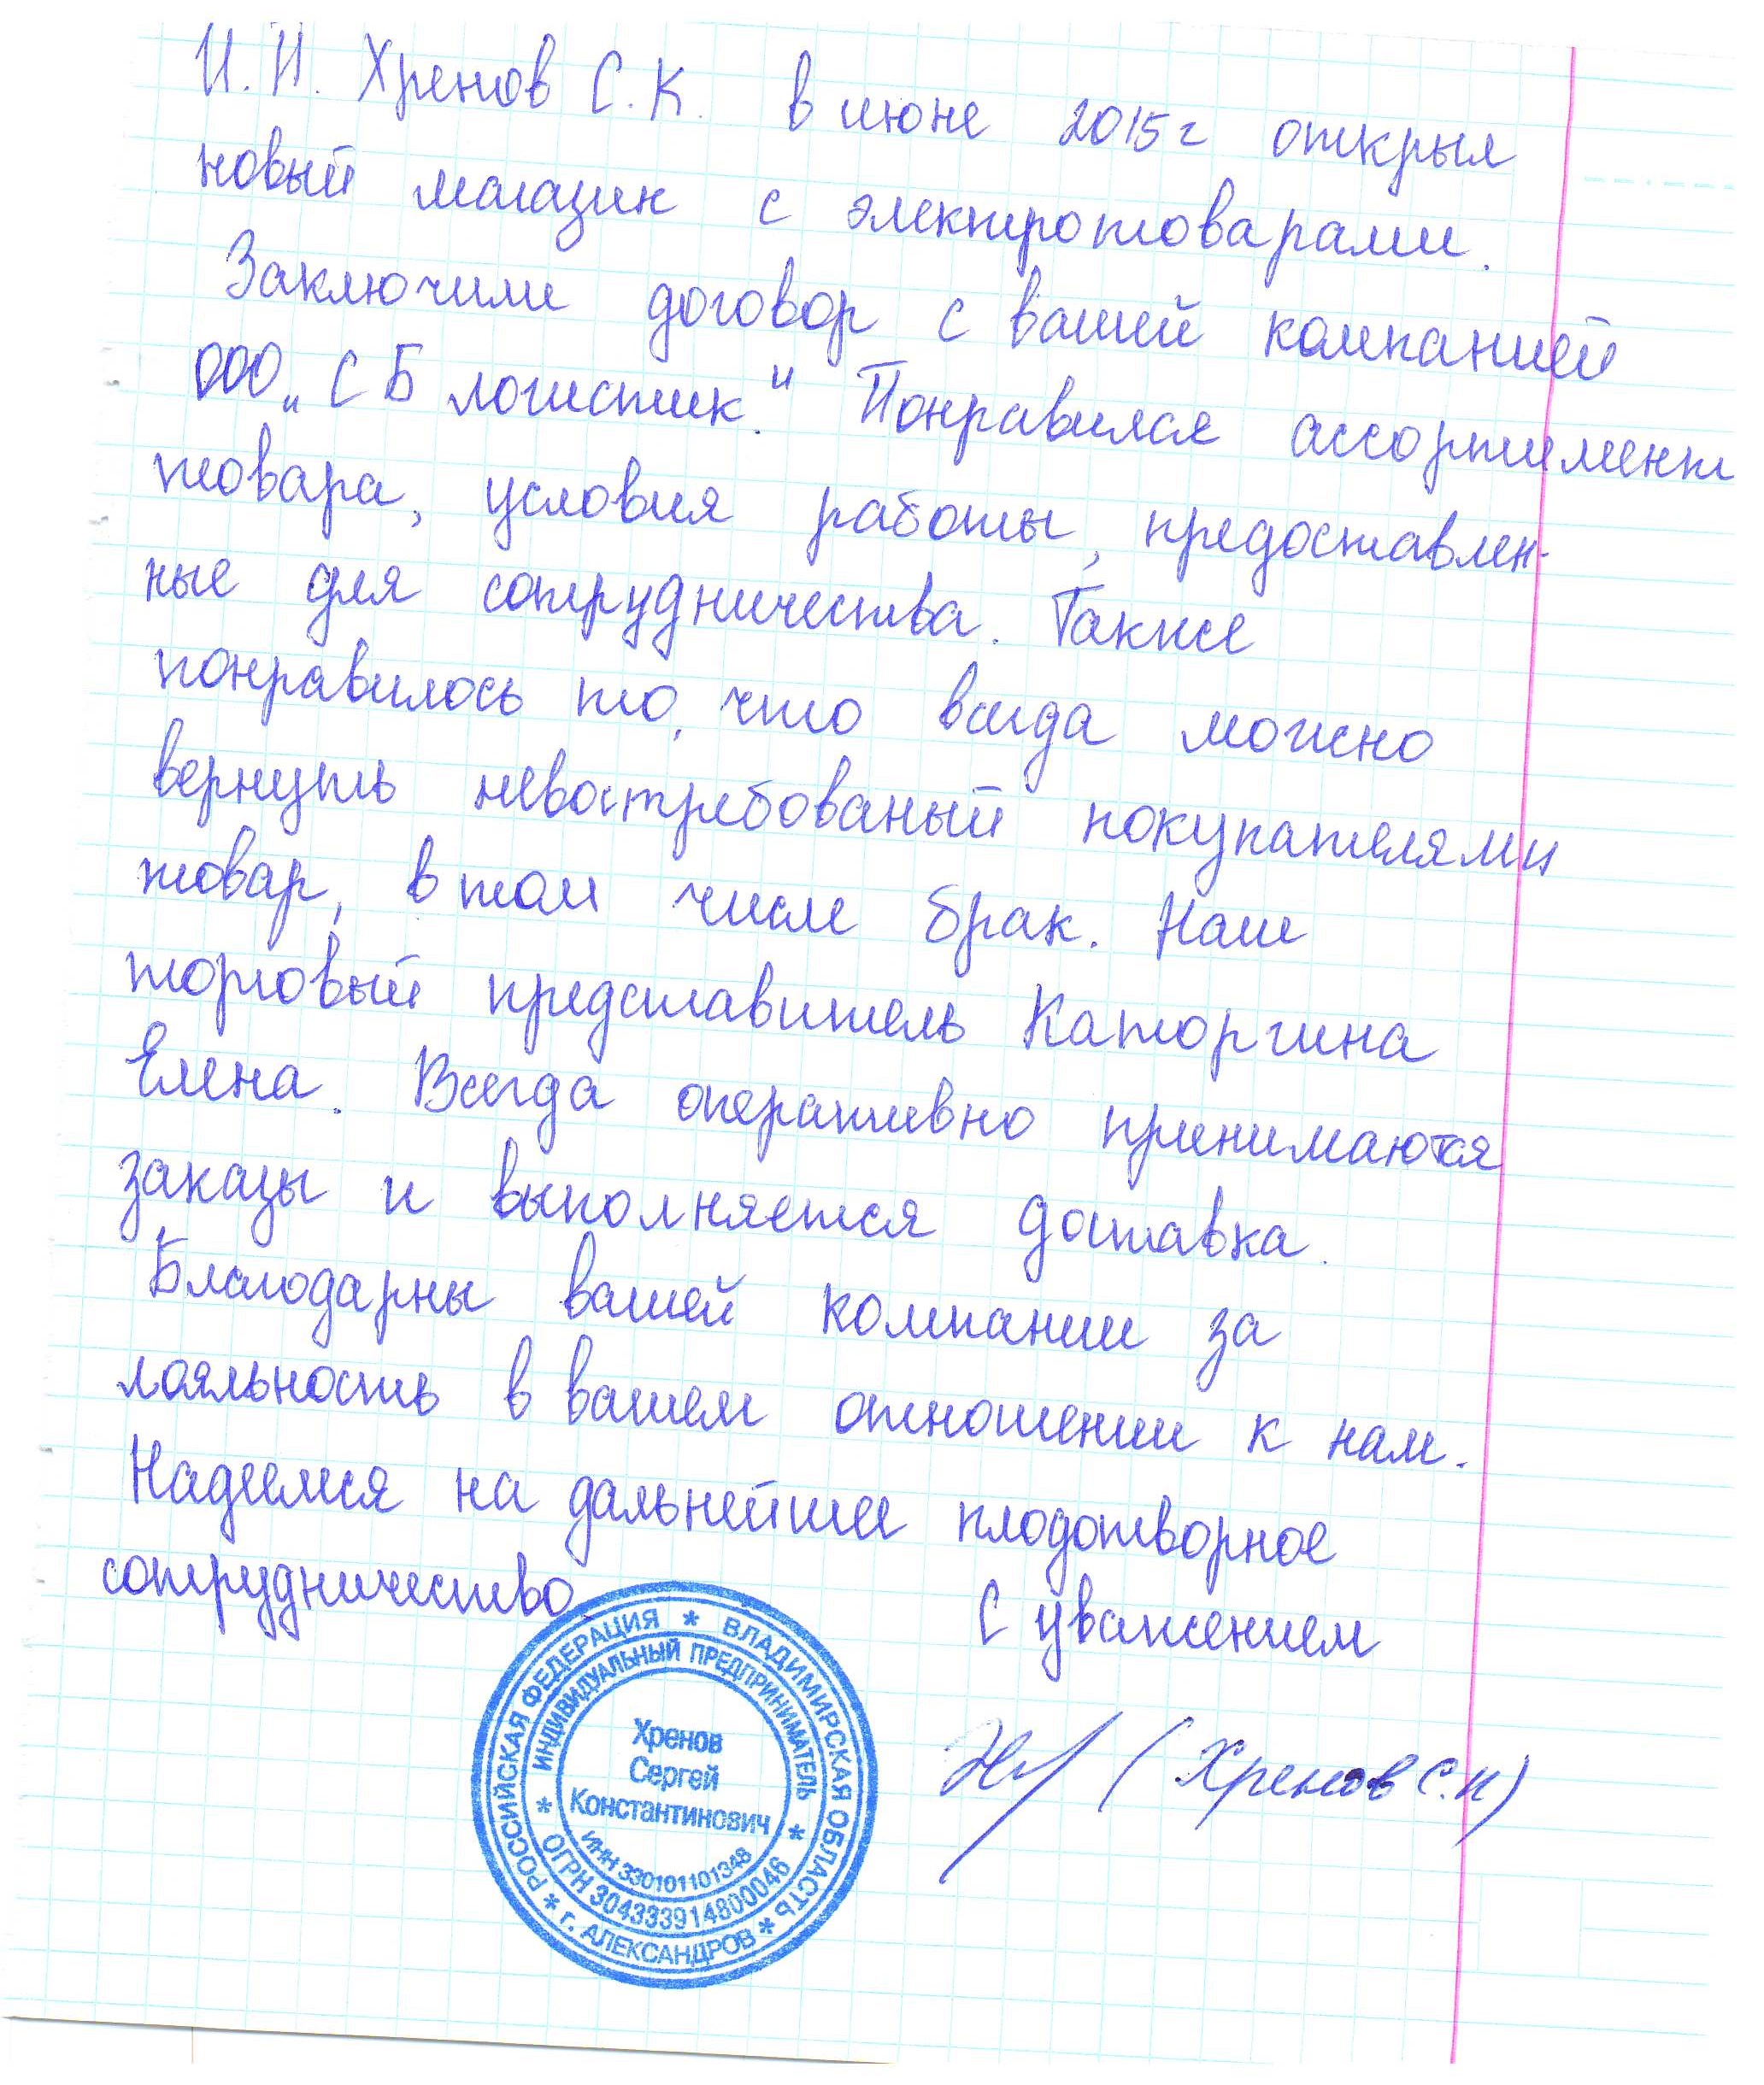 И.П. Хренов С.К. в июне 2015г открыл
новый магазин с электротоварами.
Заключили договор с вашей компанией
ООО „СБ логистик." Понравился ассортимент
товара, условия работы, предоставлен-
ные для сотрудничества. Также
понравилось то, что всегда можно
вернуть невостребованый покупателями
товар, в том числе брак. Наш
торговый представитель Каторгина
Елена. Всегда оперативно принимаются
заказы и выполняется доставка.
Благодарны вашей компании за
лояльность в вашем отношении к нам.
Надеемся на дальнейшее плодотворное
сотрудничество.
С уважением
(Хренов С.К)
РОССИЙСКАЯ ФЕДЕРАЦИЯ * ВЛАДИМИРСКАЯ ОБЛАСТЬ * г. АЛЕКСАНДРОВ *
ИНДИВИДУАЛЬНЫЙ ПРЕДПРИНИМАТЕЛЬ * ОГРН 304333914800046 *
Хренов
Сергей
Константинович
ИНН 330101101348